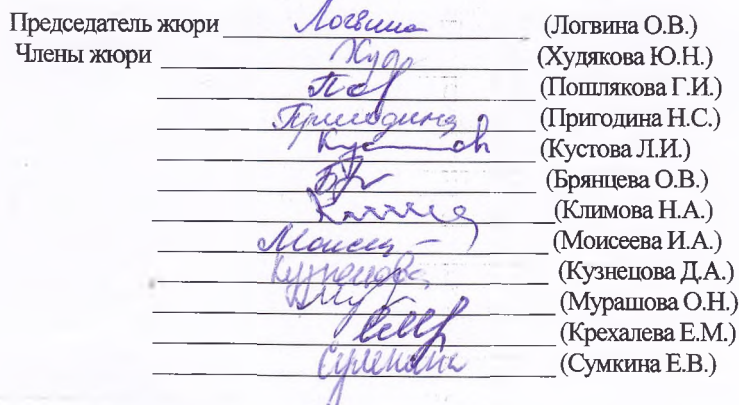 Председатель жюри Логвина (Логвина О.В.)
Члены жюри Худ (Худякова Ю.Н.)
(Пошлякова Г.И.)
Пригодина (Пригодина Н.С.)
(Кустова Л.И.)
(Брянцева О.В.)
(Климова Н.А.)
Моисеев (Моисеева И.А.)
Кузнецова (Кузнецова Д.А.)
(Мурашова О.Н.)
(Крехалева Е.М.)
Сумкина (Сумкина Е.В.)